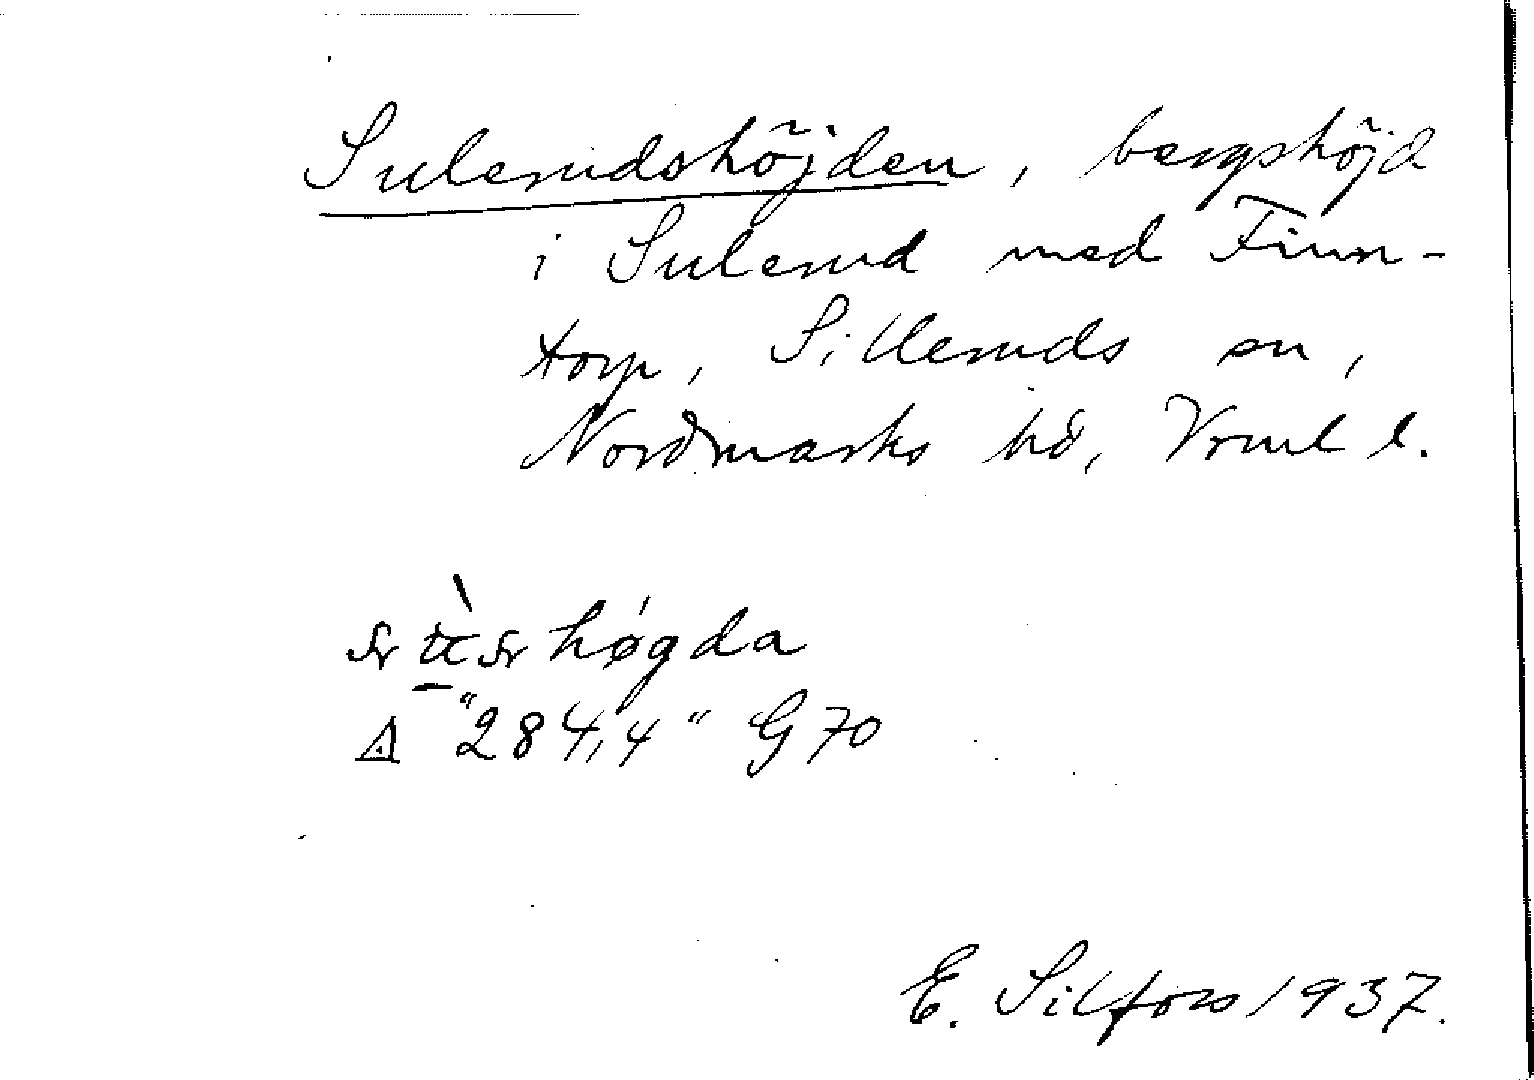 Sulerudshöjden, bergshöjd
i Sulerud med Finn-
torp, Silleruds sn,
Nordmarks hd, Vrml l.
høgda
△ "284,4" G70
E. Silfors 1937.